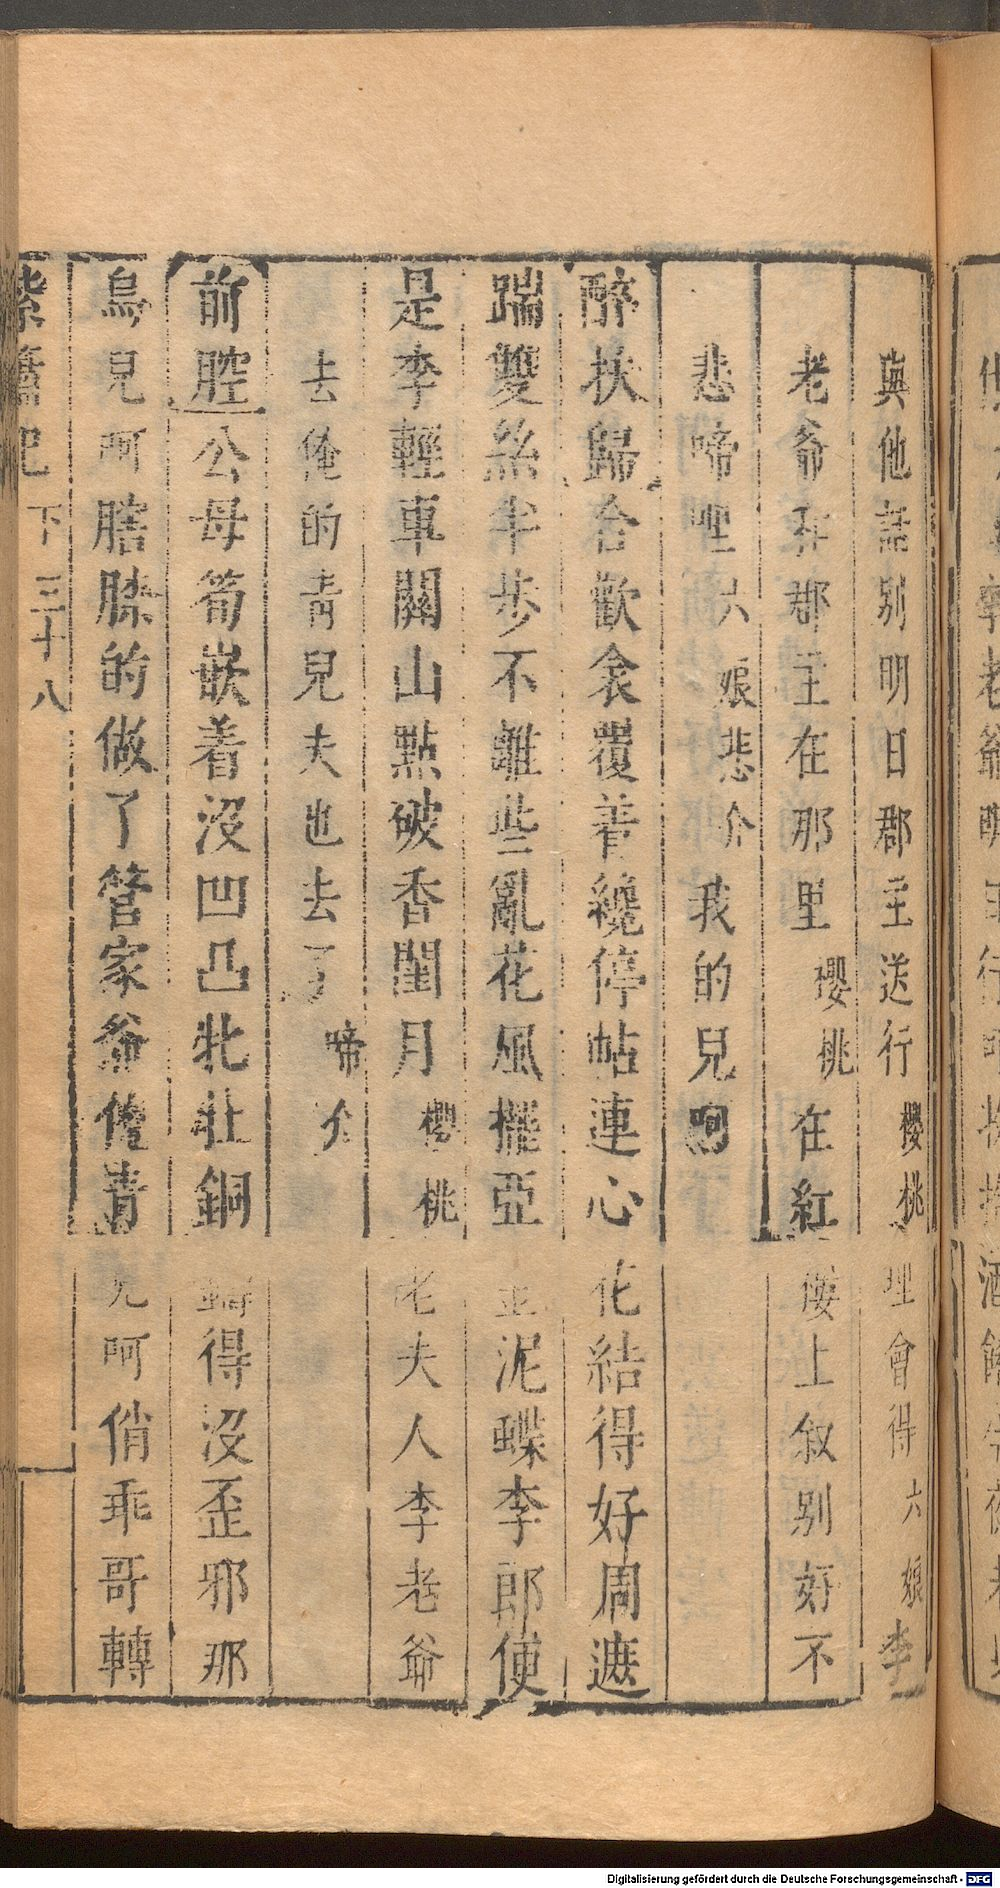 與他話別明日郡主送行櫻桃理會得六娘李
老爺和郡主在那里櫻桃在紅樓上叙別好不
悲啼哩六娘悲介我的兒呵
醉扶歸合歡衾覆着纔停帖連心花結得好周遮
踹雙絲半步不離些亂花風擺亞金泥蝶李郎便
是李輕車關山點破香閨月櫻桃老夫人李老爺
去俺的青兒夫也去了啼介
前腔公母筍嵌着沒凹凸牝牡銅得沒歪邪那
鳥兒呵膪膝的做了管家爺俺青兒呵俏乖哥轉
紫簫記 下 三十八
Digitalisierung gefördert durch die Deutsche Forschungsgemeinschaft - DFG